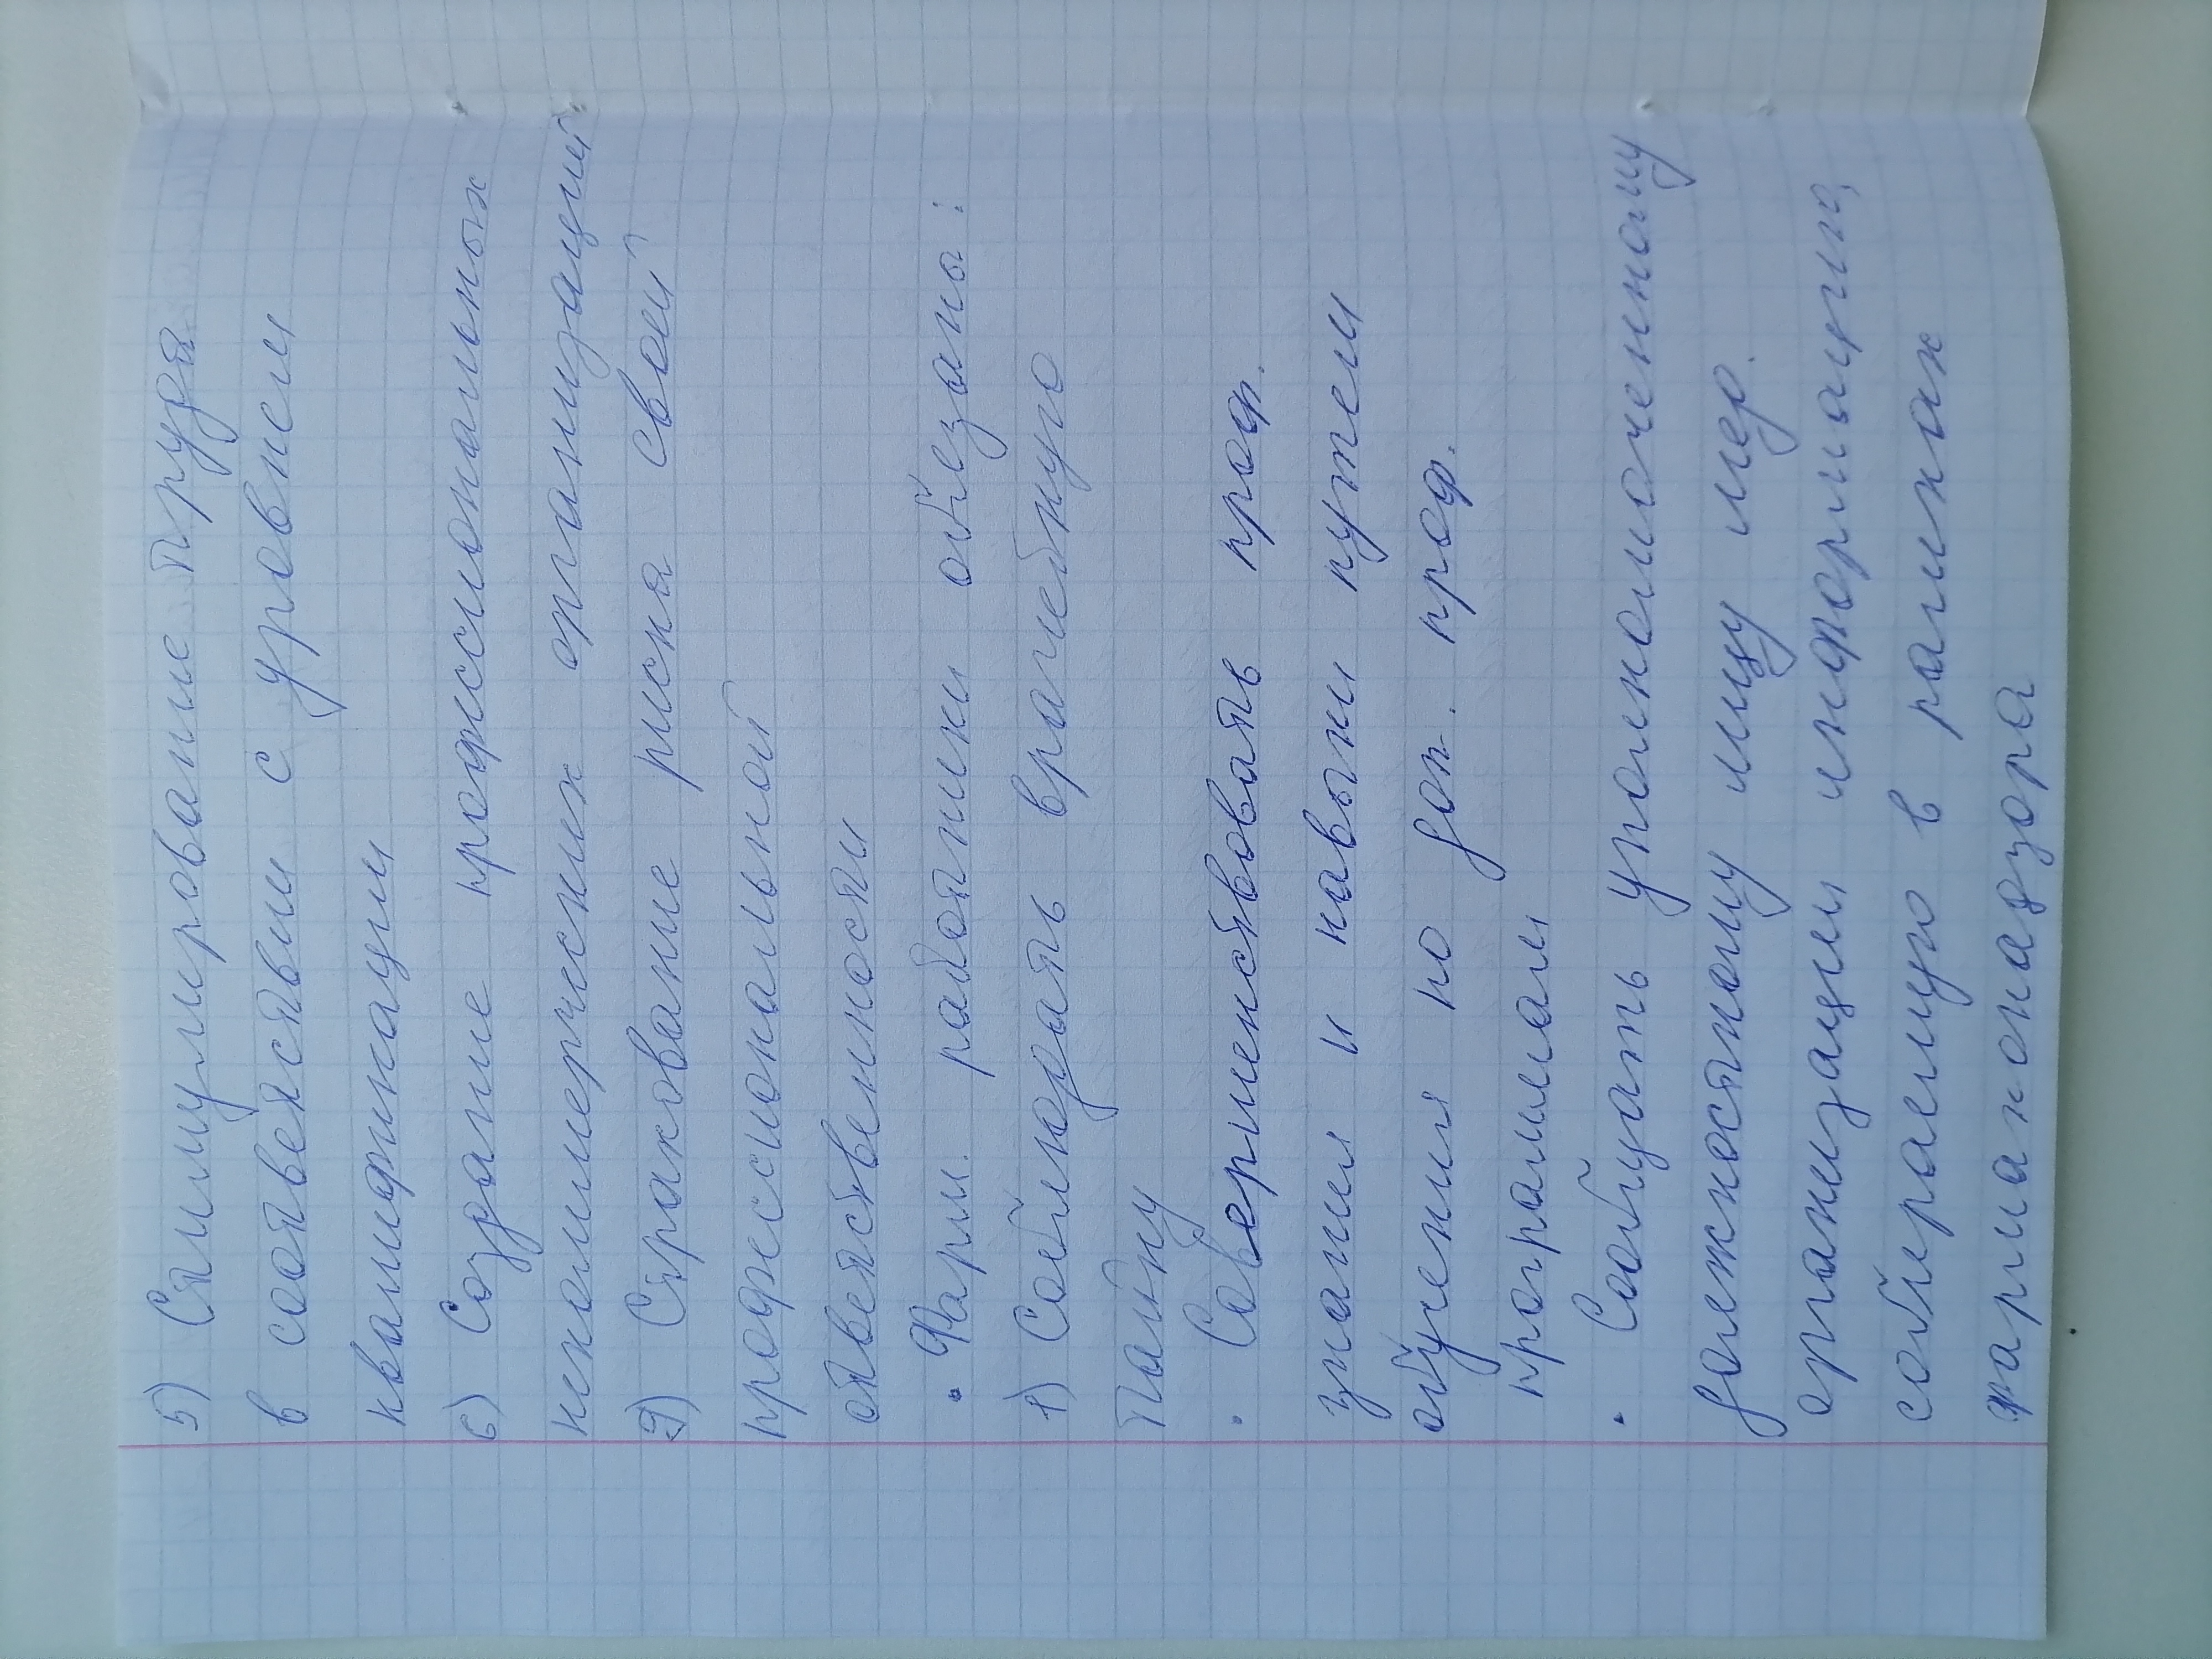 5) Стимулирование труда
в соответствии с уровнем
квалификации
6) Создание профессиональных
некоммерческих организаций
7) Страхование риска своей
профессиональной
ответственности
• Фарм. работники обязаны:
1) Соблюдать врачебную
тайну
• Совершенствовать проф.
знания и навыки путем
обучения по доп. проф.
программам
• Сообщать уполномоченному
должностному лицу мед.
организации информацию,
собираемую в рамках
фармаконадзора